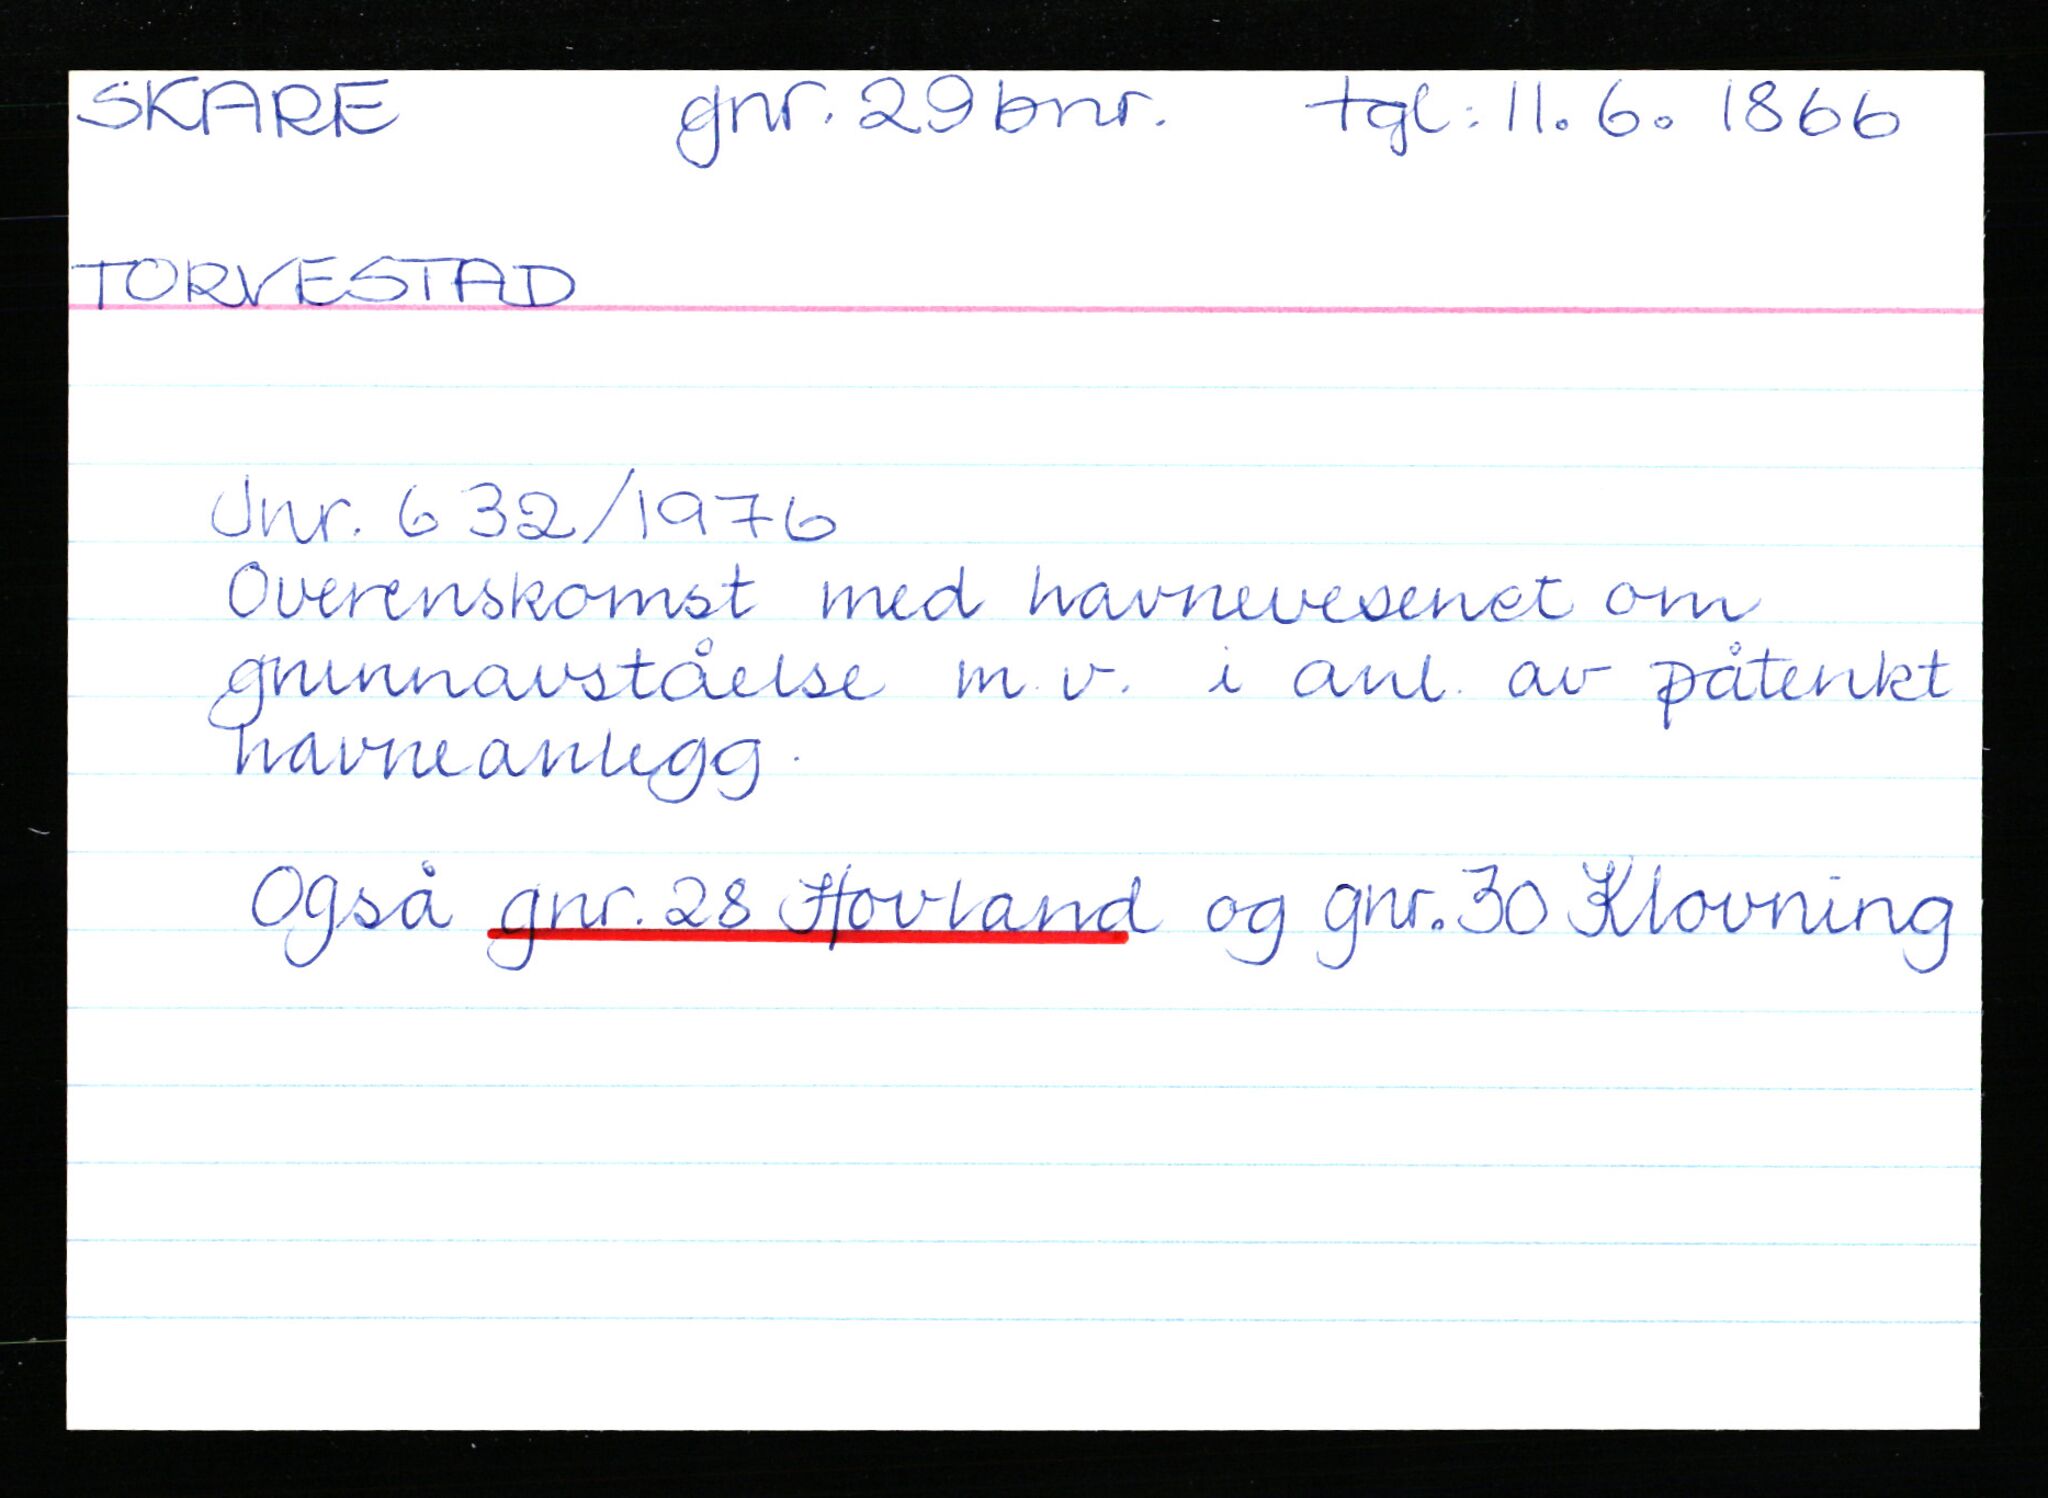 SKARE gnr. 29 bnr. tgl: 11. 6. 1866
TORVESTAD
Jnr. 632/1976
Overenskomst med havnevesenet om
grunnavståelse m.v. i anl. av påtenkt
havneanlegg.
Også gnr. 28 Hovland og gnr. 30 Klovning